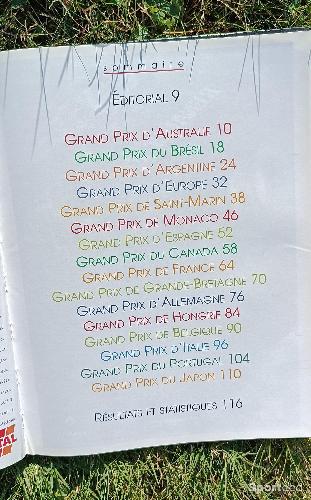 sommaire
ÉDITORIAL 9
GRAND PRIX D'AUSTRALIE 10
GRAND PRIX DU BRÉSIL 18
GRAND PRIX D'ARGENTINE 24
GRAND PRIX D'EUROPE 32
GRAND PRIX DE SAINT-MARIN 38
GRAND PRIX DE MONACO 46
GRAND PRIX D'ESPAGNE 52
GRAND PRIX DU CANADA 58
GRAND PRIX DE FRANCE 64
GRAND PRIX DE GRANDE-BRETAGNE 70
GRAND PRIX D'ALLEMAGNE 76
GRAND PRIX DE HONGRIE 84
GRAND PRIX DE BELGIQUE 90
GRAND PRIX D'ITALIE 96
GRAND PRIX DU PORTUGAL 104
GRAND PRIX DU JAPON 110
RÉSULTATS ET STATISTIQUES 116